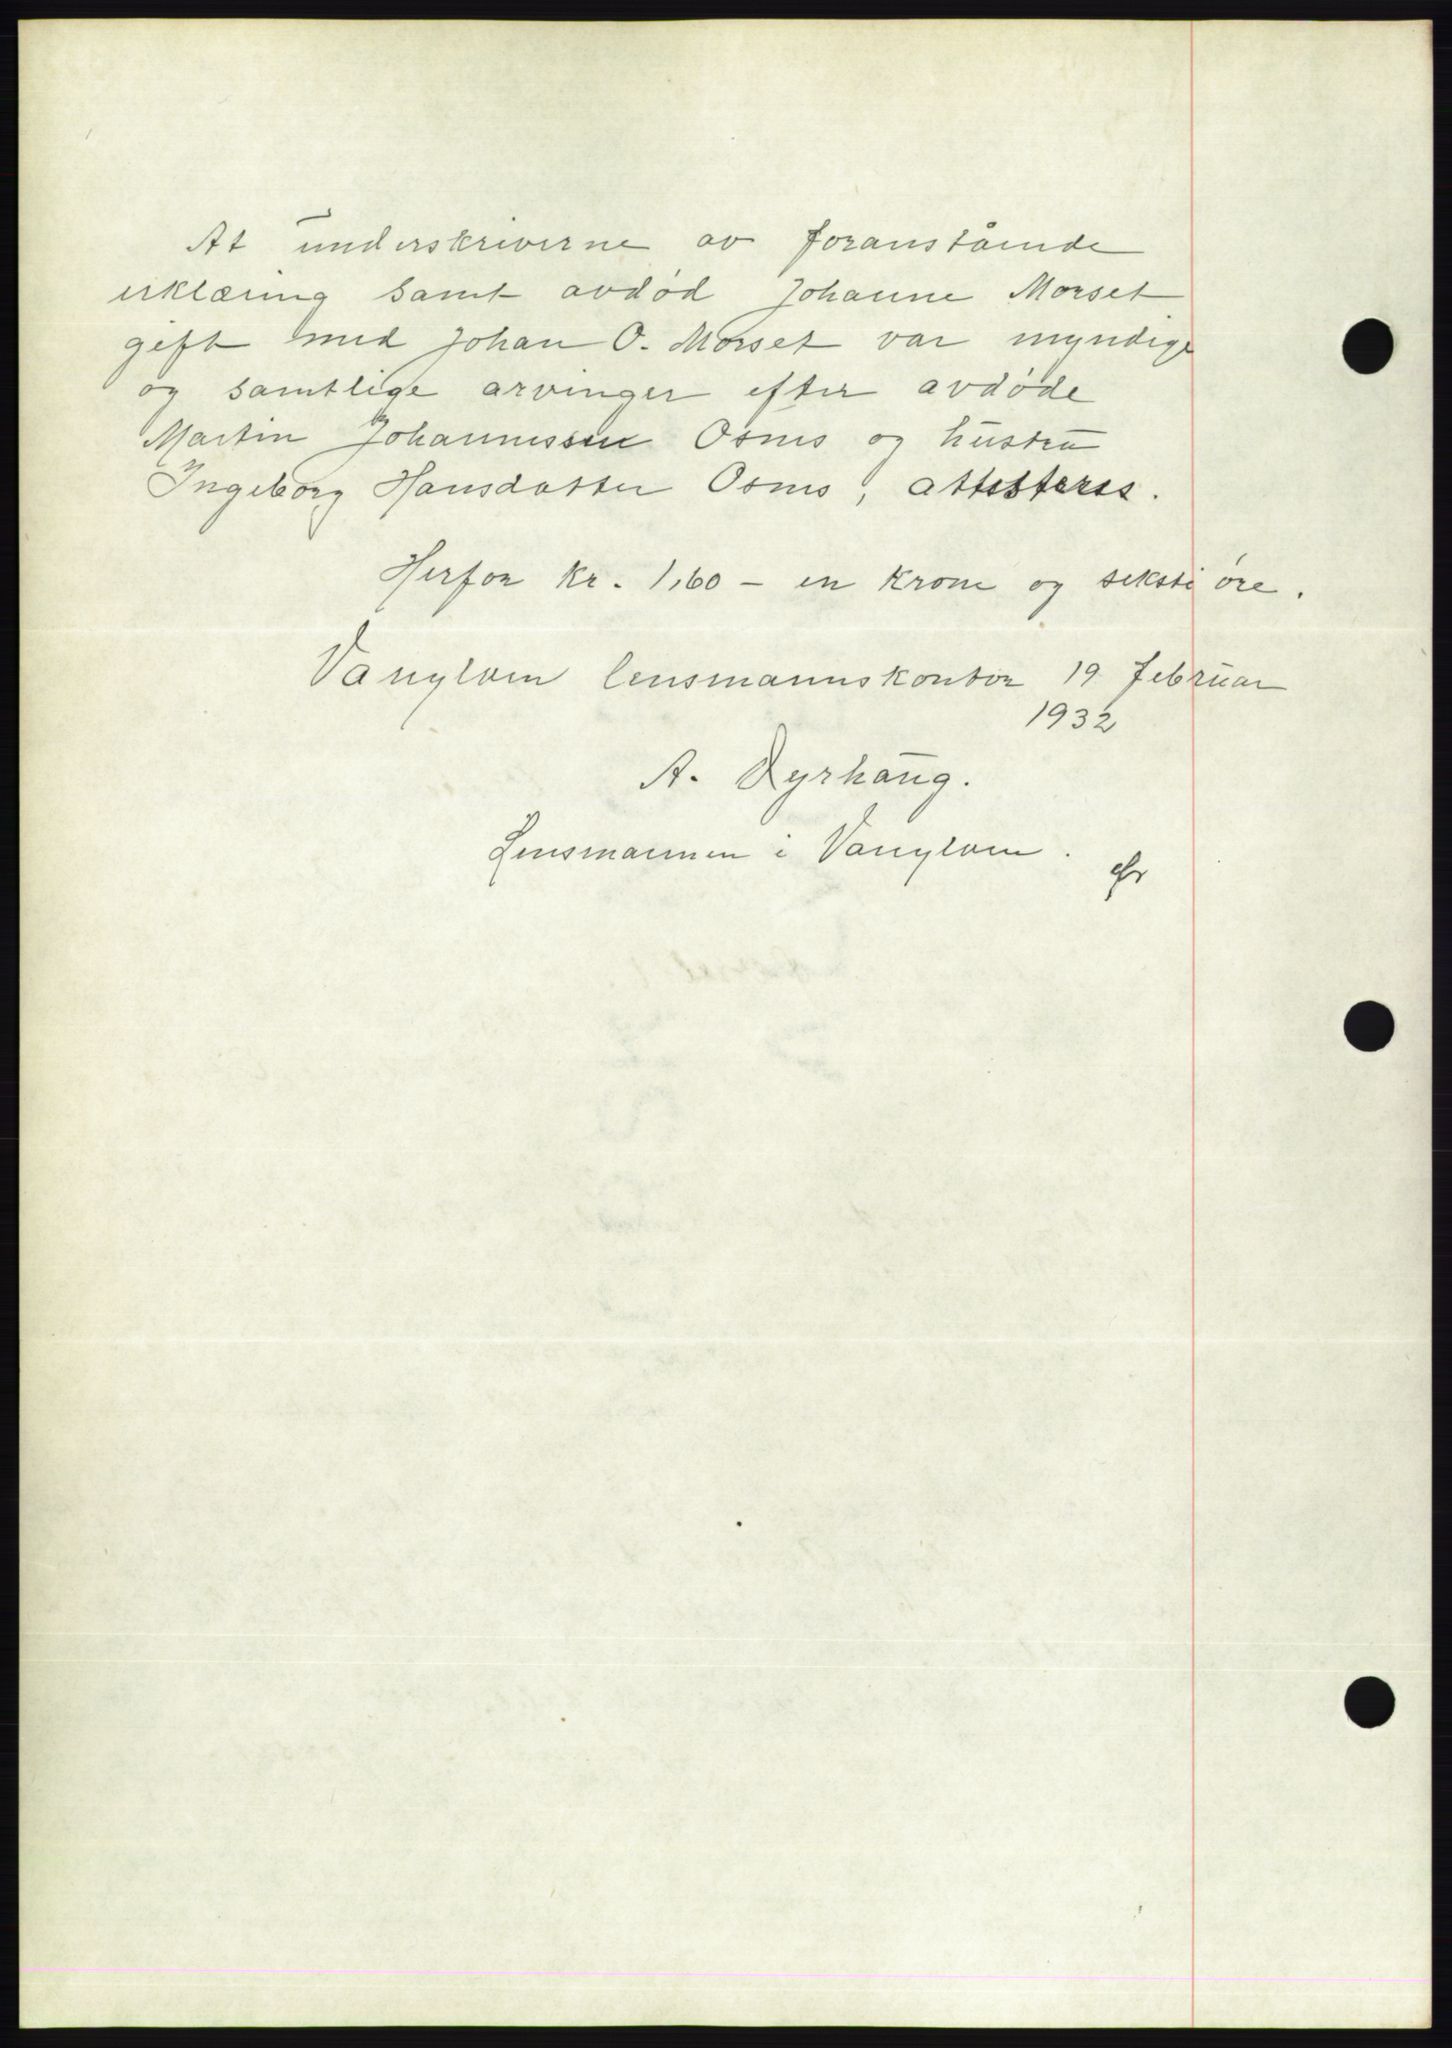 At underskriverne av foranstående
erklæring samt avdød Johanne Morset
gift med Johan O. Morset var myndige
og samtlige arvinger efter avdøde
Martin Johannessen Osnes og hustru
Ingeborg Hansdatter Osnes, attesteres.
Herfor kr. 1,60 – en krone og seksti øre.
Vanylven lensmannskontor 19 februar
1932
A. Dyrhaug.
Lensmannen i Vanylven.